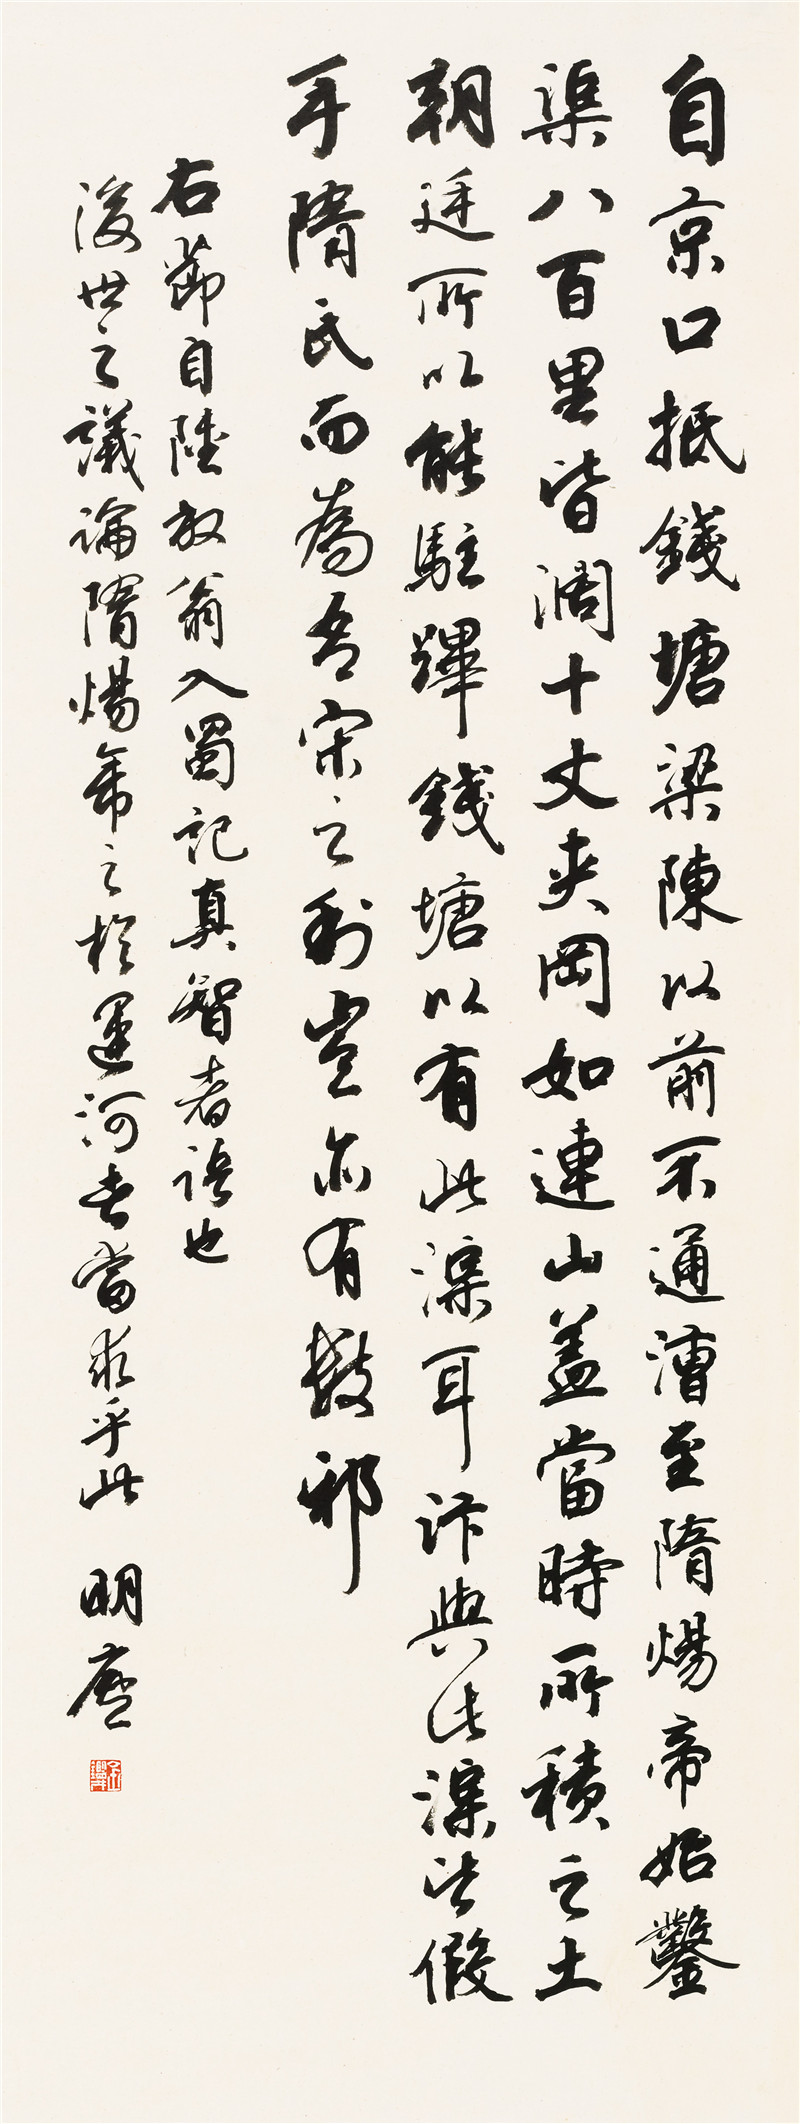 自京口抵錢塘梁陳以前不通漕至隋煬帝始鑿
渠八百里皆闊十丈夾岡如連山蓋當時所積之土
朝廷所以能駐蹕錢塘以有此渠耳汴與此渠皆假
手隋氏而為吾宋之利豈亦有數邪
右節自陸放翁入蜀記真智者語也
後世之議論隋煬帝之於運河者當求乎此 明廬